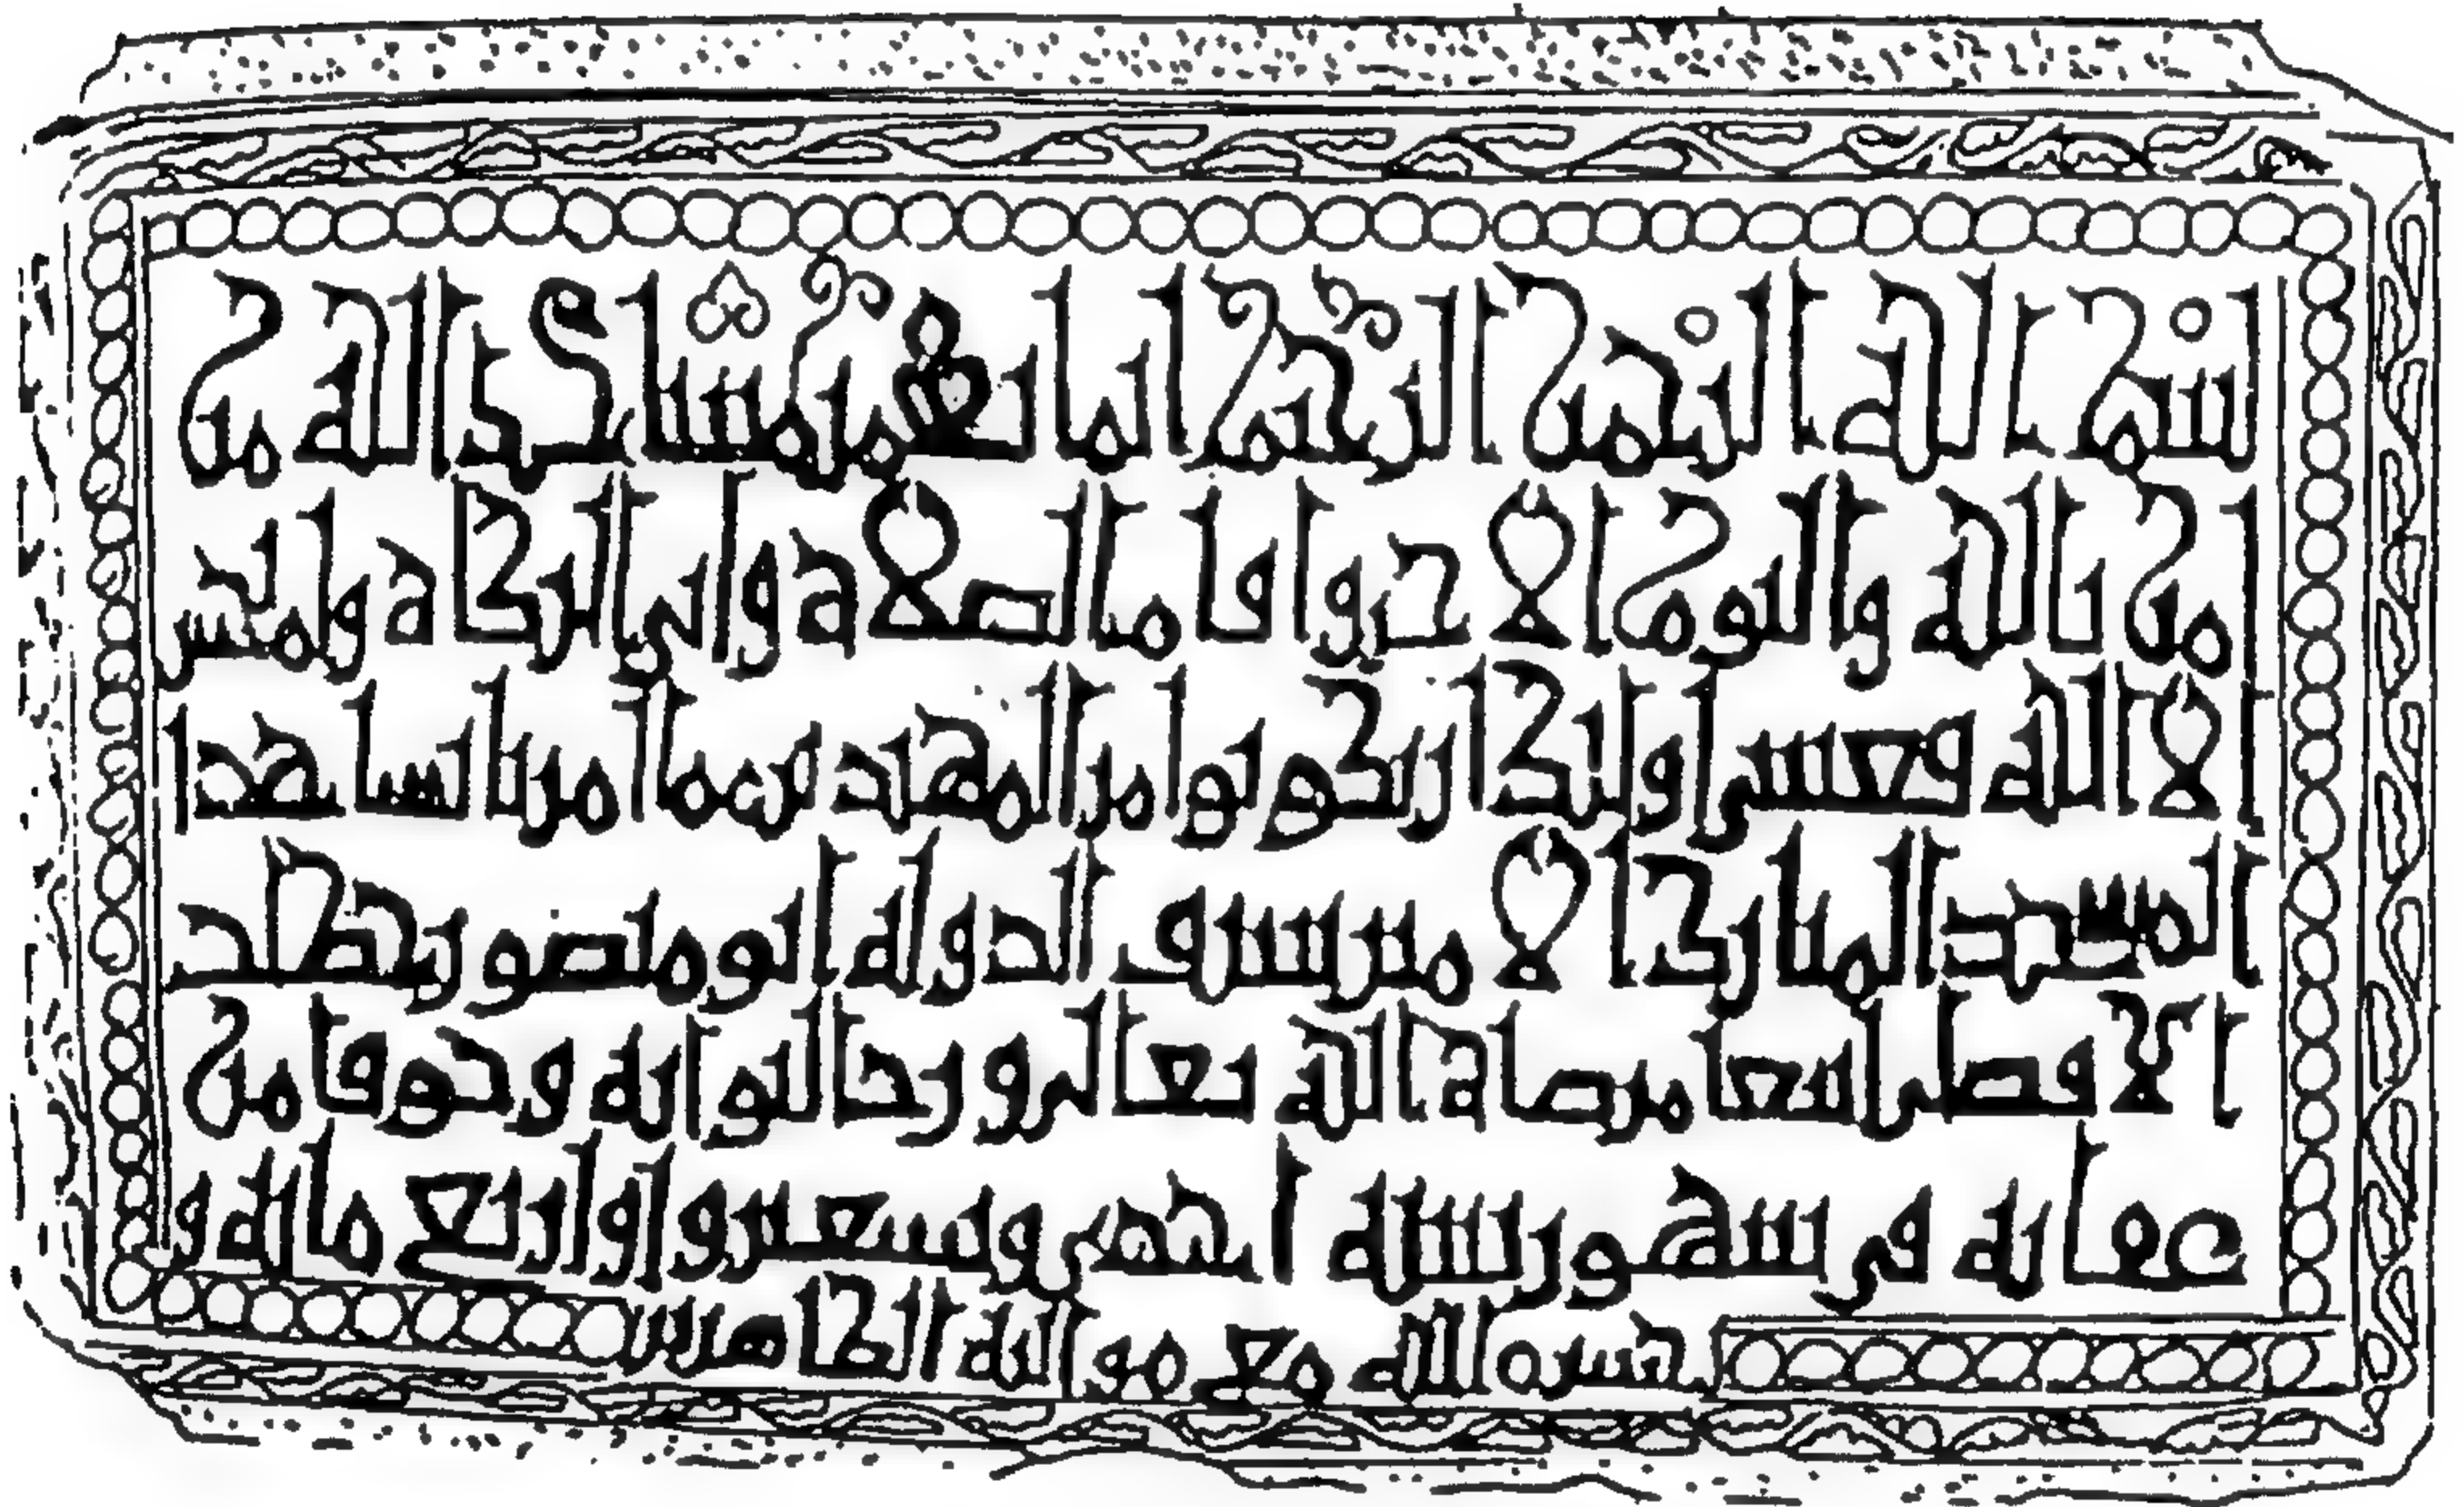 بسم الله الرحمن الرحيم انما يعمر مساجد الله من
امن بالله واليوم الاخر واقام الصلاة واتى الزكاة ولم يخش
الا الله فعسى اولئك ان يكونوا من المهتدين مما امر بانشا هذا
المسجد المبارك الامير شرف الدولة ابو منصور
الافضلي ابتغا مرضاة الله تعالى ورجا لثوابه وخوفا من
عقابه في شهور سنة احدى وتسعين واربع مائة و
حشره الله مع مواليه الطاهرين